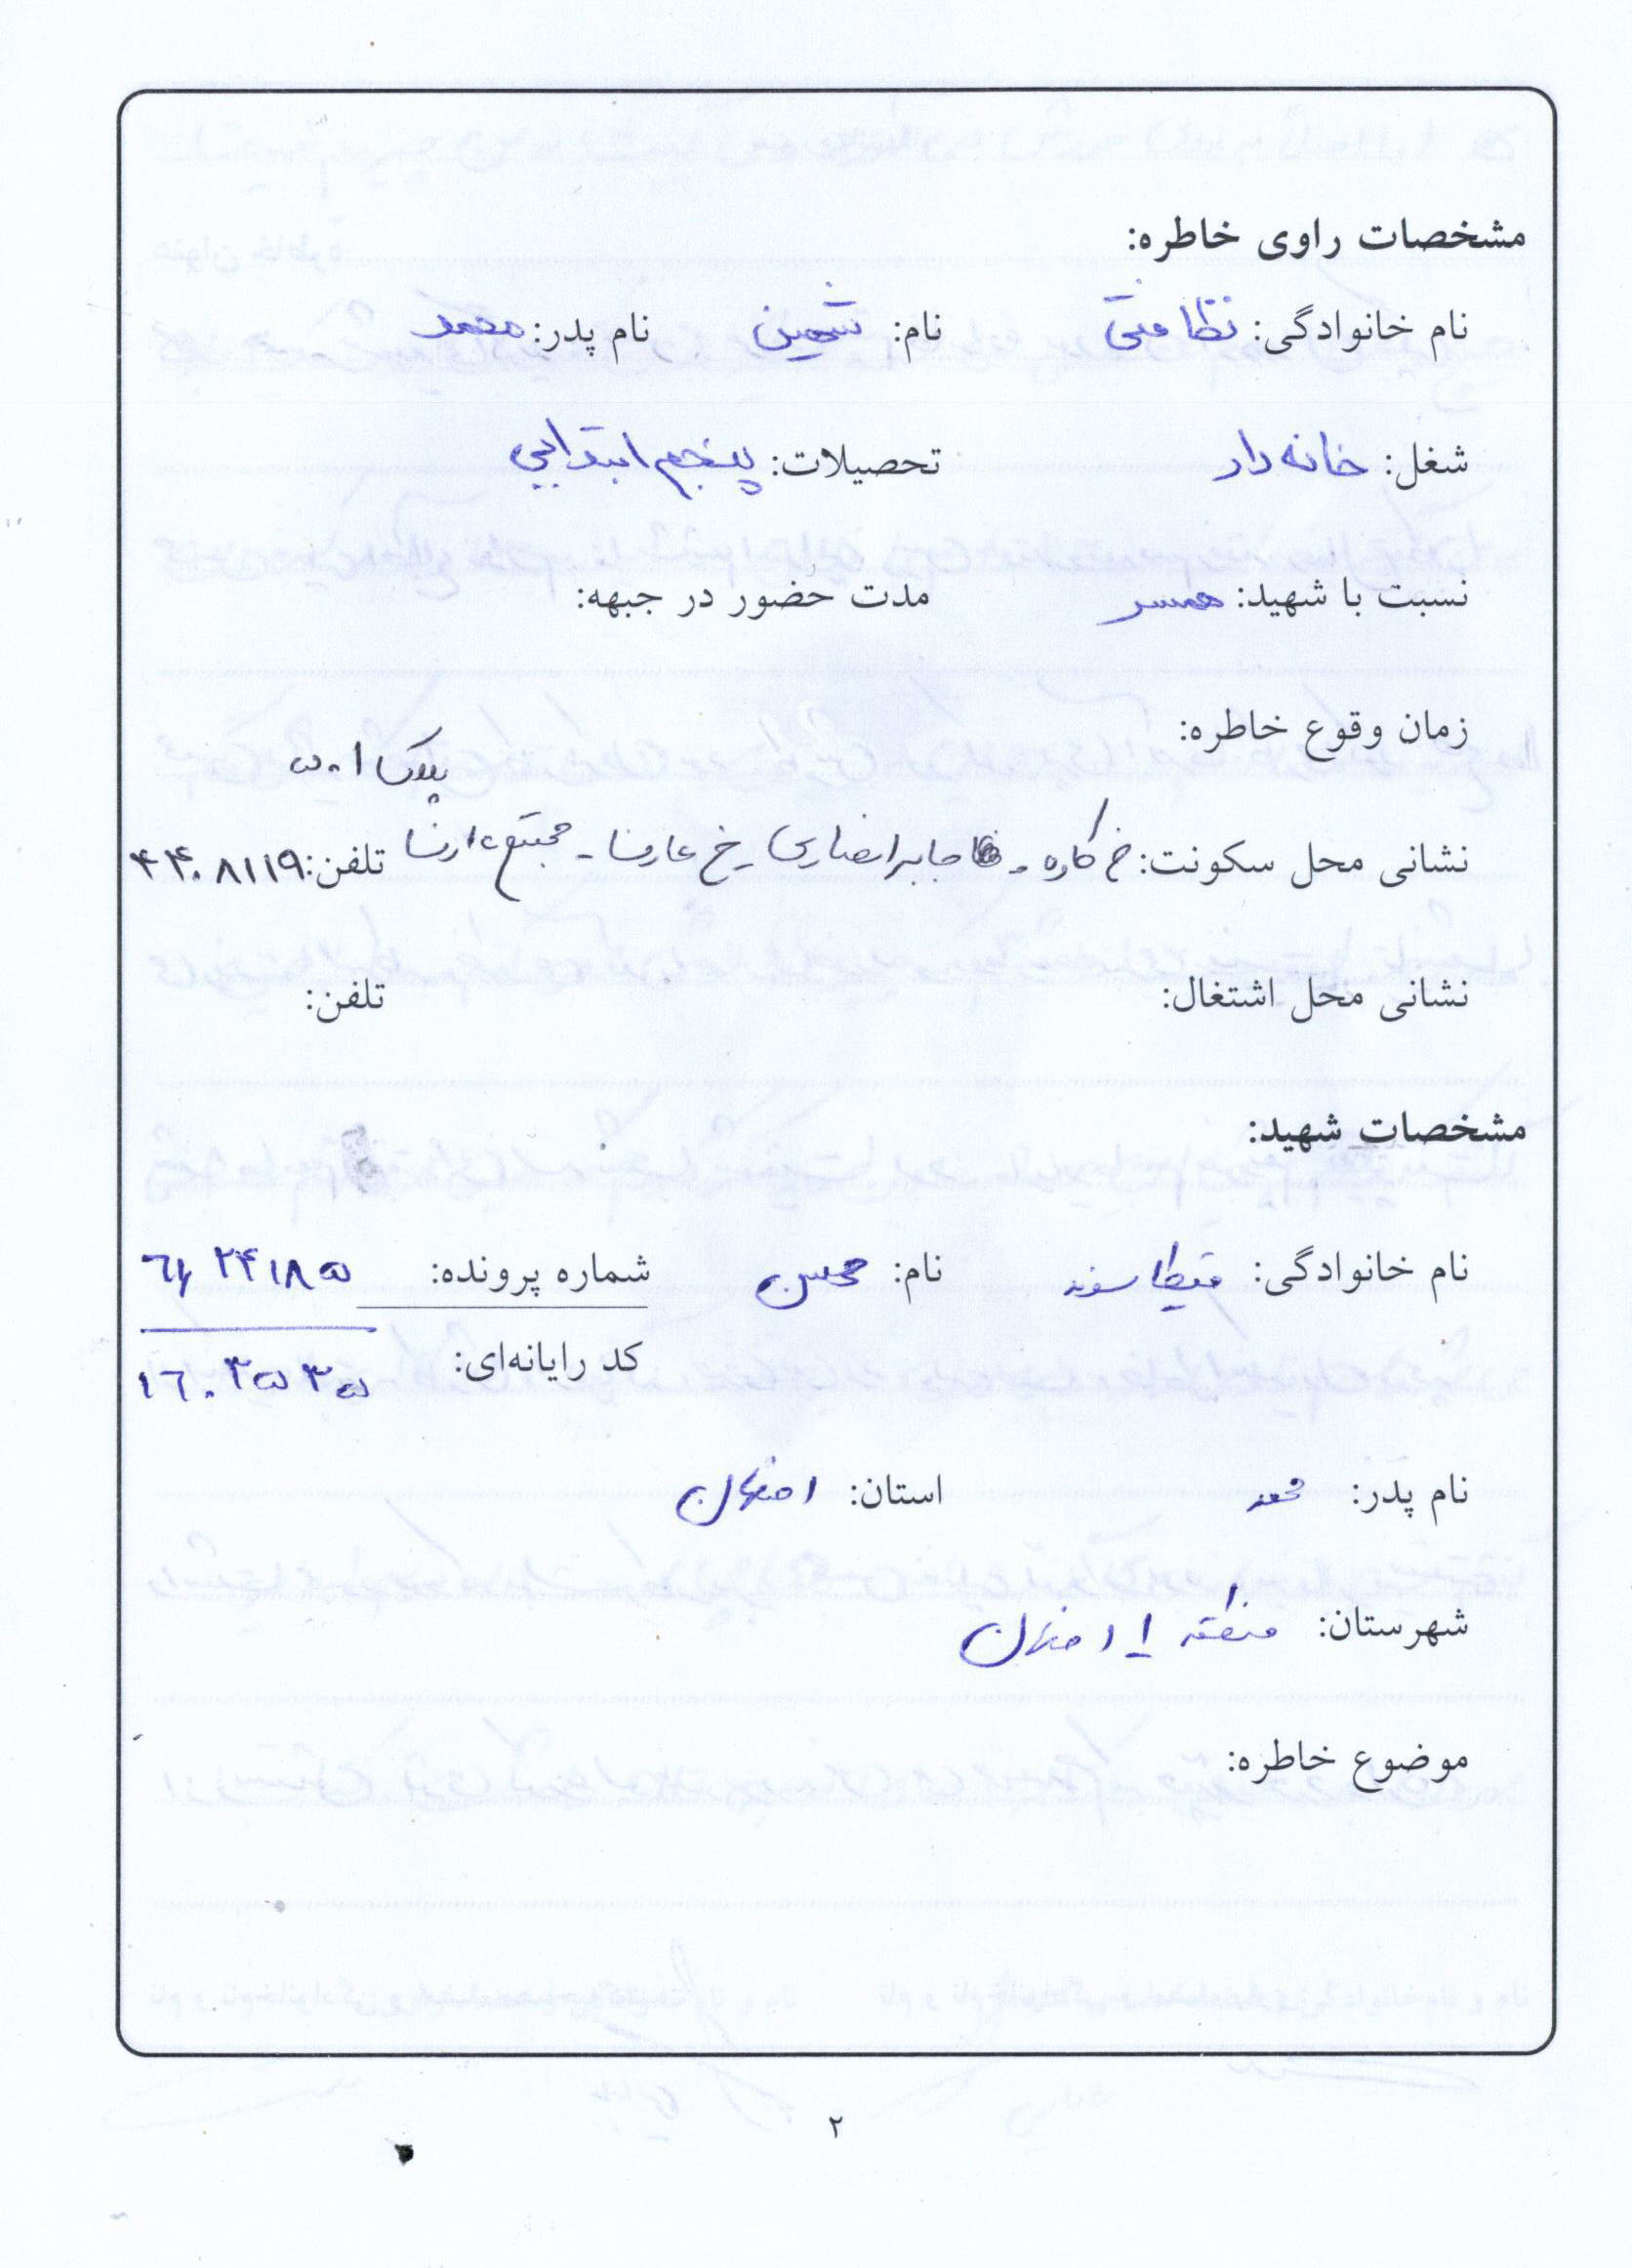 مشخصات راوی خاطره:
نام خانوادگی: نظامتی نام: ثمین نام پدر: محمد
شغل: خانه دار تحصیلات: پنجم ابتدایی
نسبت با شهید: همسر مدت حضور در جبهه:
زمان وقوع خاطره:
پلاک ۱۰۵
نشانی محل سکونت: خ کاوه - جابر انصاری خ عارفا - مجتمع تلفن: ۴۴۰۸۱۱۹
نشانی محل اشتغال: تلفن:
مشخصات شهید:
نام خانوادگی: نام: محسن شماره پرونده: ۶۱ ۲۴۱۸۵
کد رایانه‌ای: ۱۶۰۳۵۳۵
نام پدر: محمد استان: اصفهان
شهرستان: منطقه ۱ اصفهان
موضوع خاطره:
۲